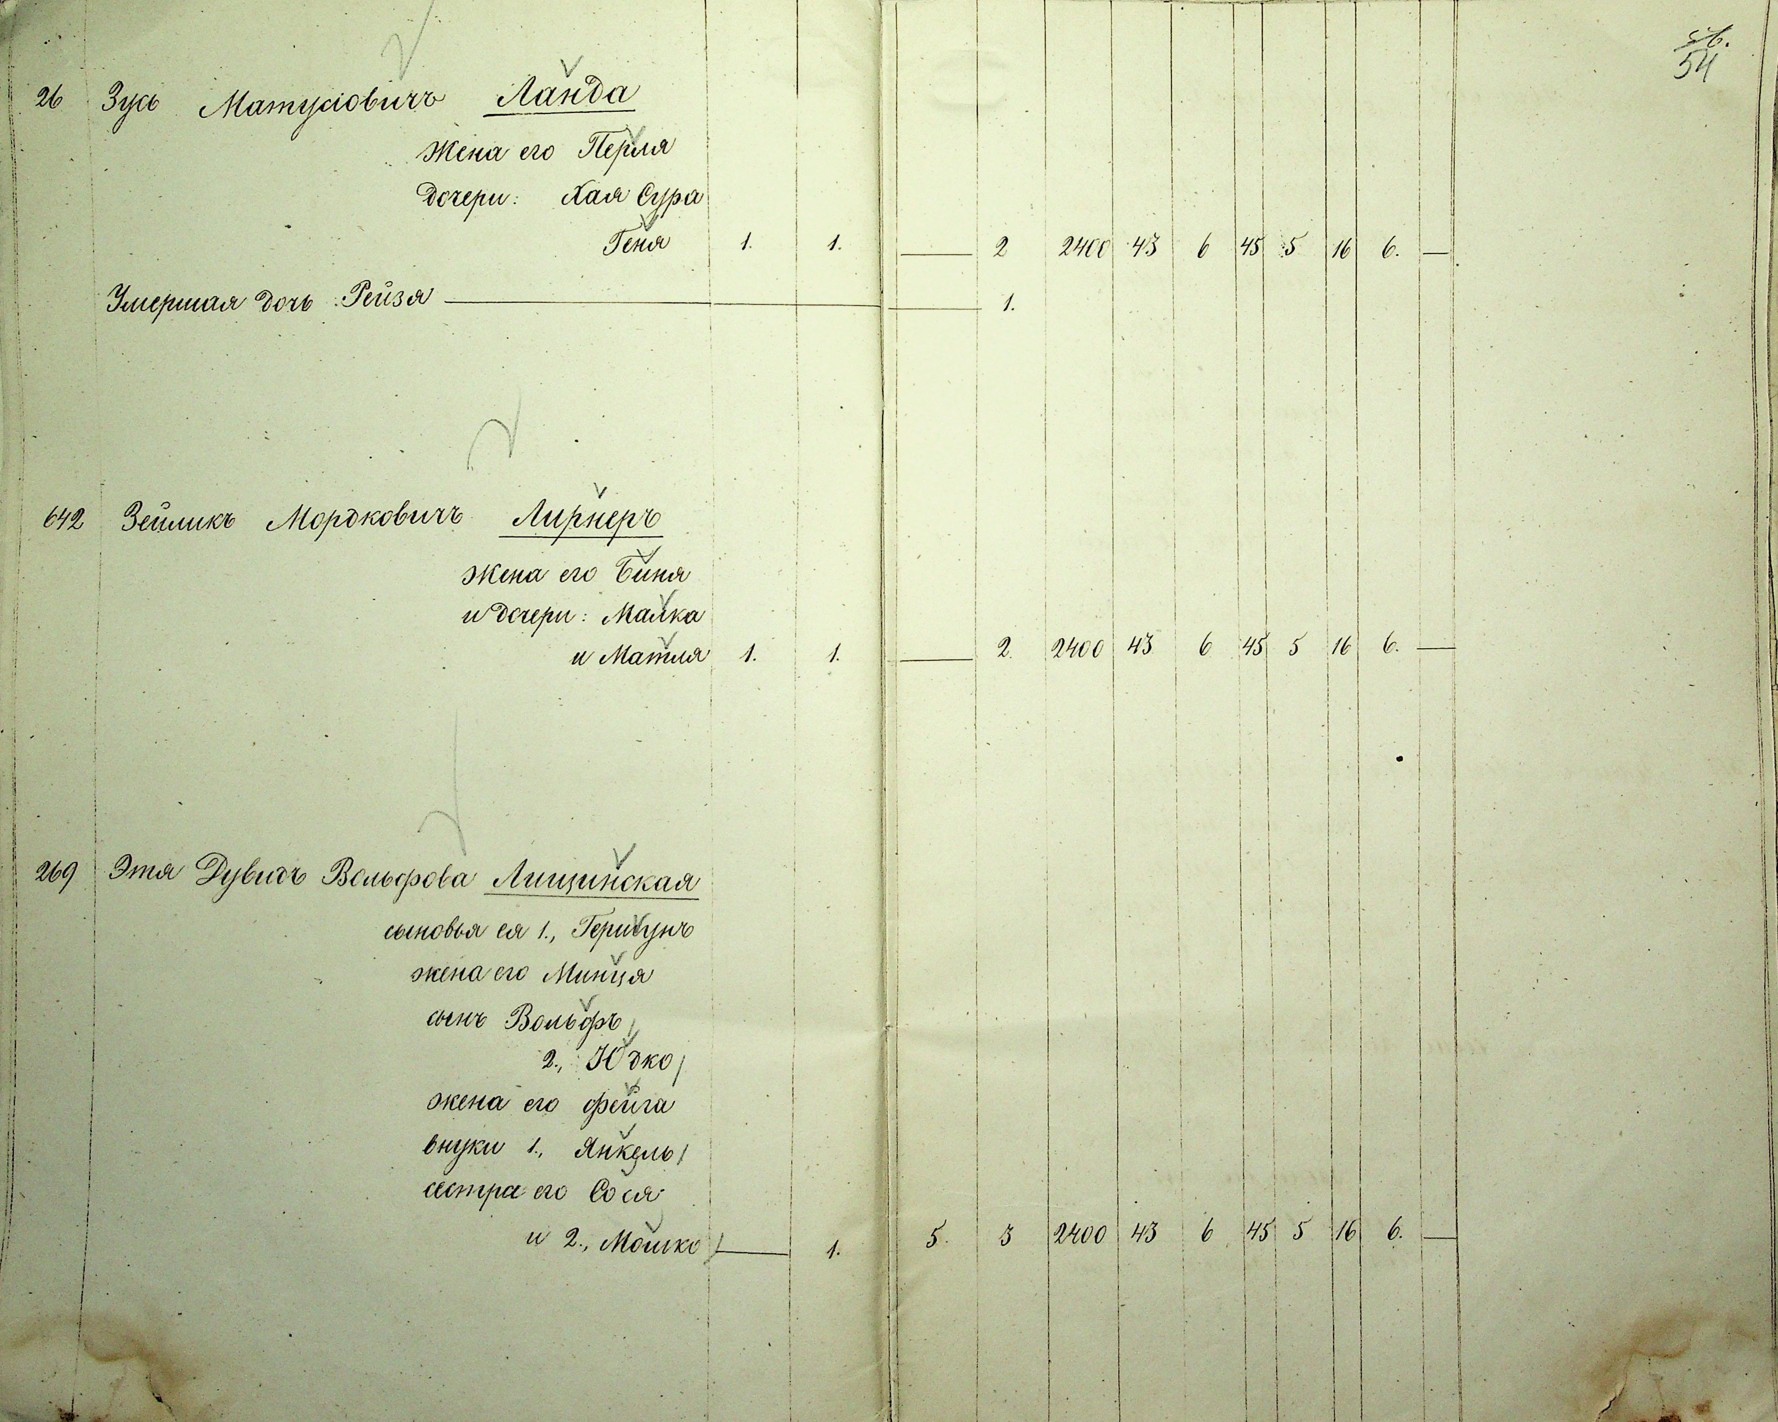 54
26 Зусь Матусіовичъ Ланда
жена его Перля
дочери: Хая Сура
Геня 1. 1. — 2 2400 43 6 45 5 16 6. —
Умершая дочь Рейзя — — 1.
642 Зейликъ Мордковичъ Лирнеръ
жена его Биня
и дочери: Малка
и Матля 1. 1. — 2 2400 43 6 45 5 16 6. —
269 Этя Дувидъ Вольфова Лищинская
сыновья ея 1., Гершунъ
жена его Минця
сынъ Вольфъ
2., Юдко
жена его Фейга
внуки 1., Янкель
сестра его Сося
и 2., Мошко — 1. 5. 3 2400 43 6 45 5 16 6. —